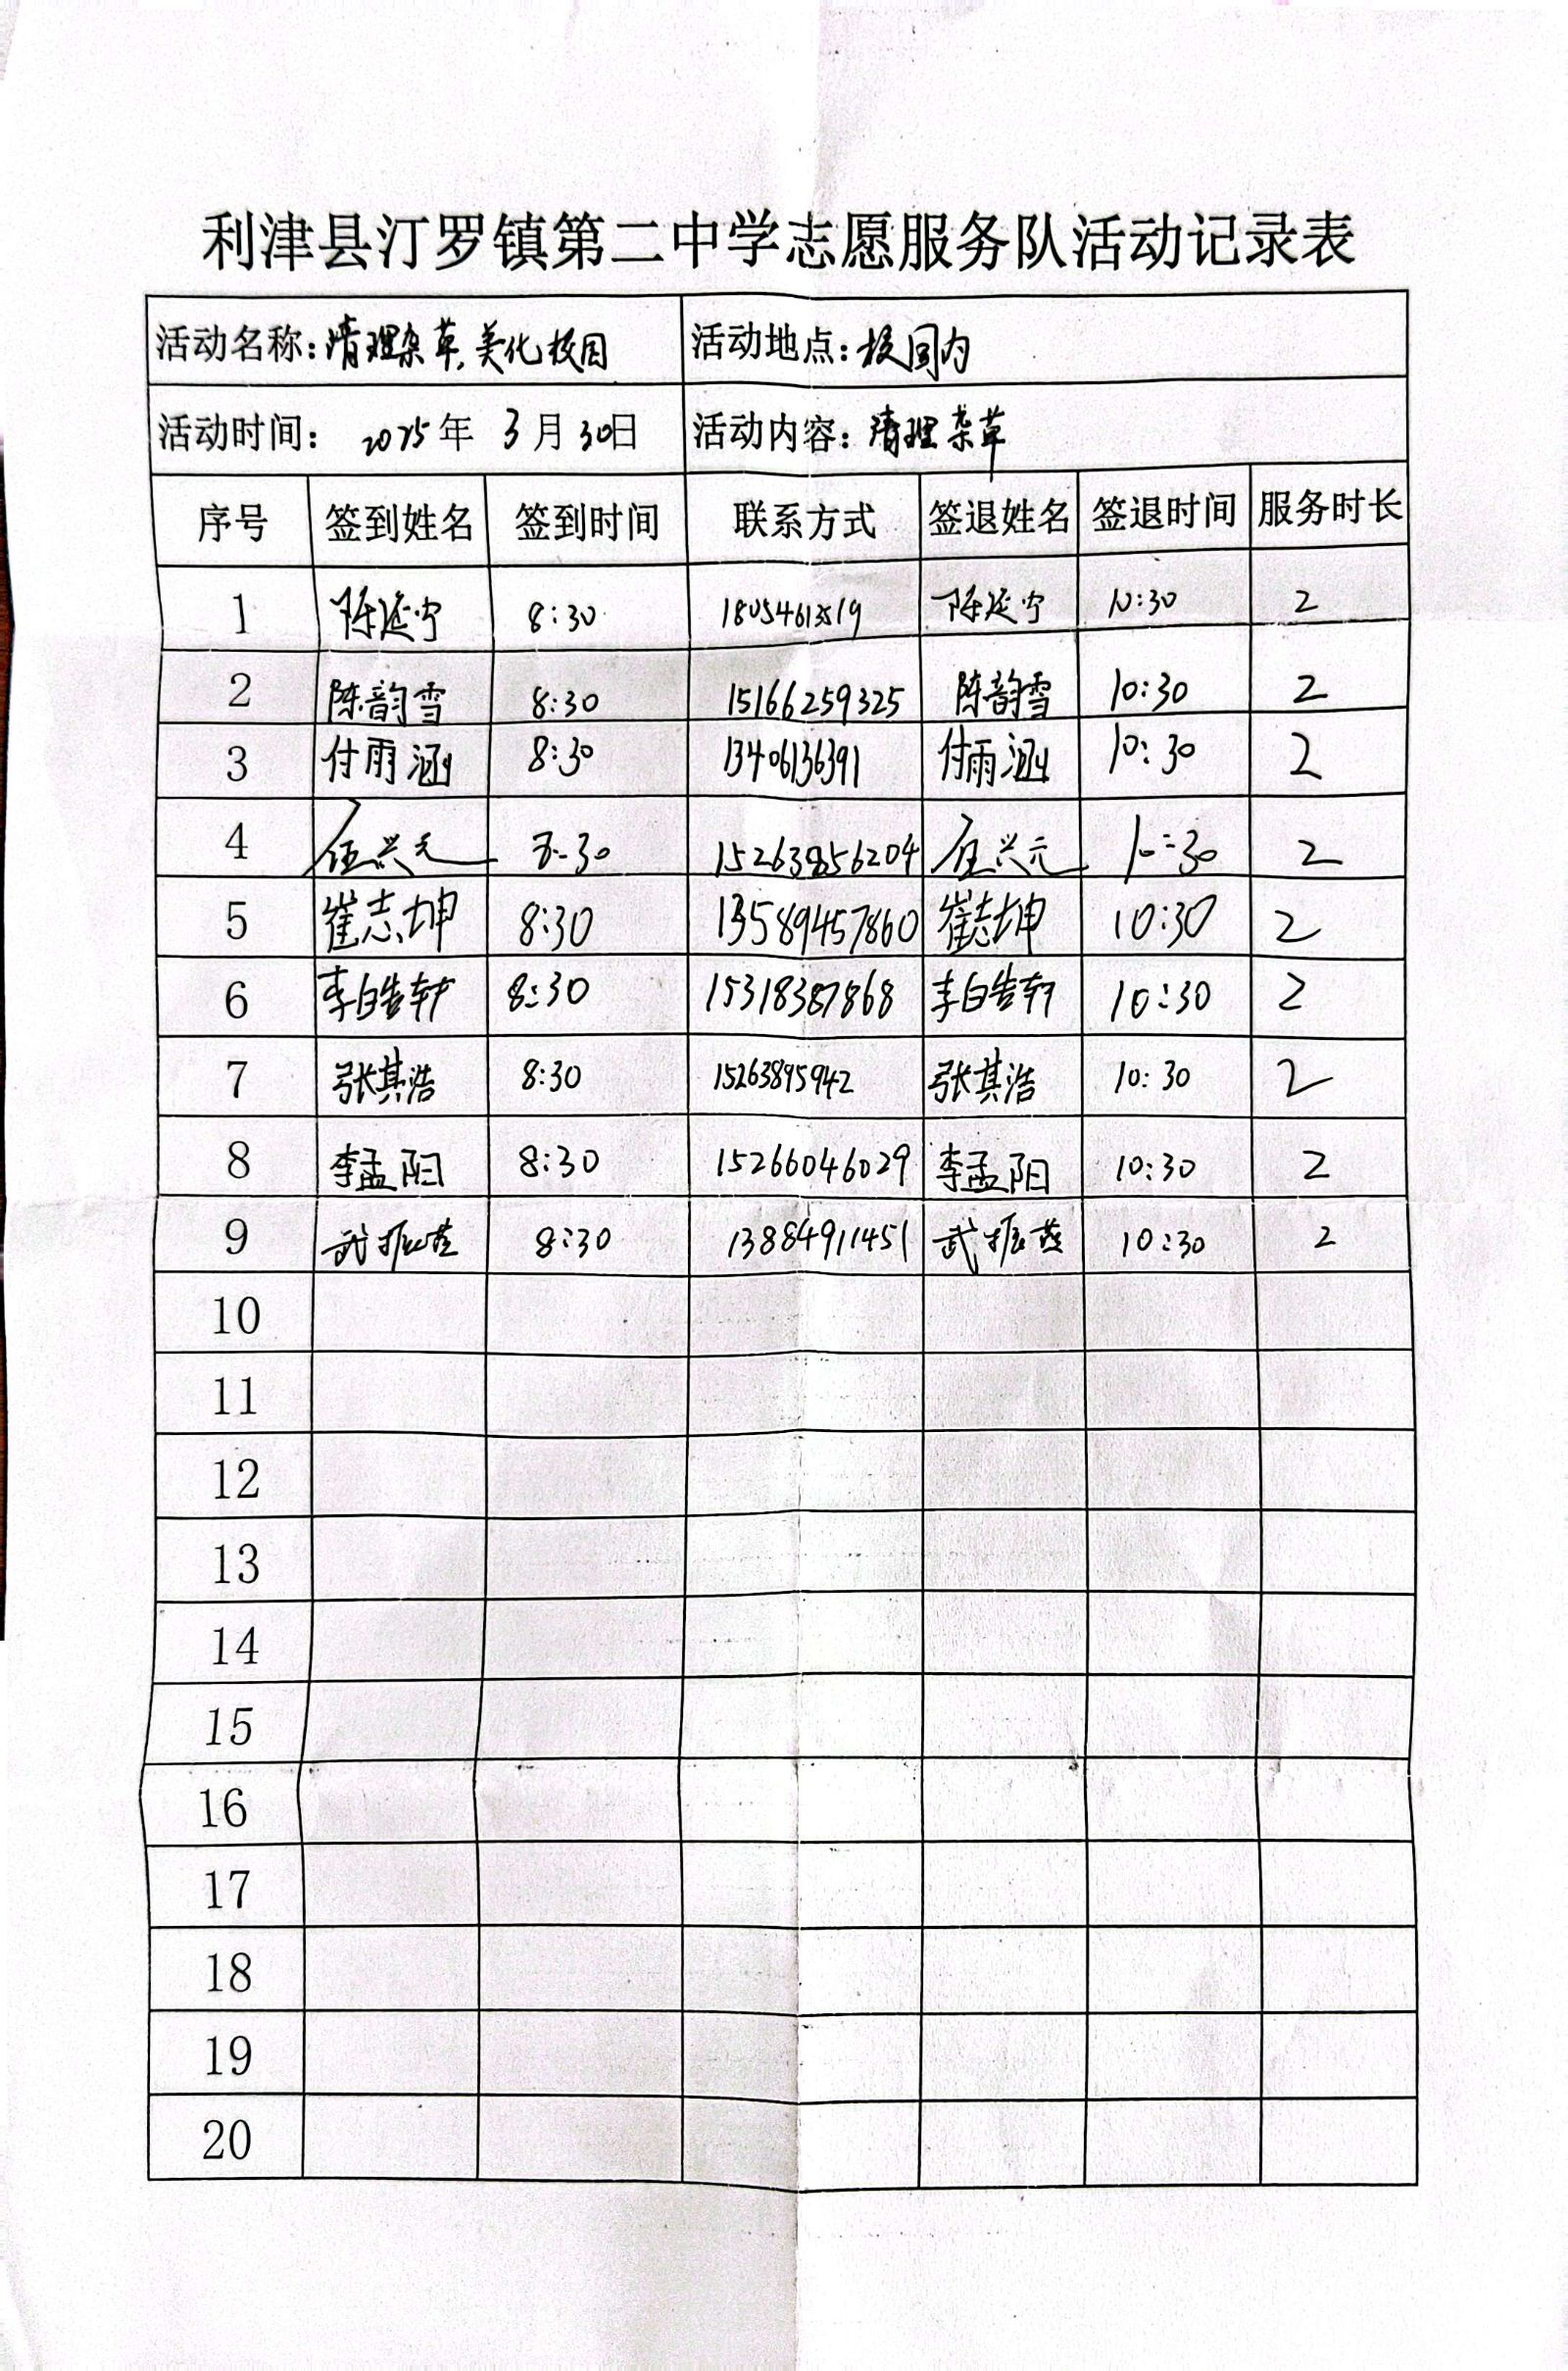 利津县汀罗镇第二中学志愿服务队活动记录表
活动名称:清理杂草,美化校园 活动地点:校园内
活动时间: 2025年 3月30日 活动内容:清理杂草
序号 签到姓名 签到时间 联系方式 签退姓名 签退时间 服务时长
1 陈延宁 8:30 陈延宁 10:30 2
2 陈韵雪 8:30 15166259325 陈韵雪 10:30 2
3 付雨涵 8:30 13406136391 付雨涵 10:30 2
4 8:30 15263856204 10:30 2
5 崔志坤 8:30 13589457860 崔志坤 10:30 2
6 李皓轩 8:30 15318387868 李皓轩 10:30 2
7 张其浩 8:30 15263895942 张其浩 10:30 2
8 李孟阳 8:30 15266046029 李孟阳 10:30 2
9 武振燕 8:30 13884911451 武振燕 10:30 2
10
11
12
13
14
15
16
17
18
19
20